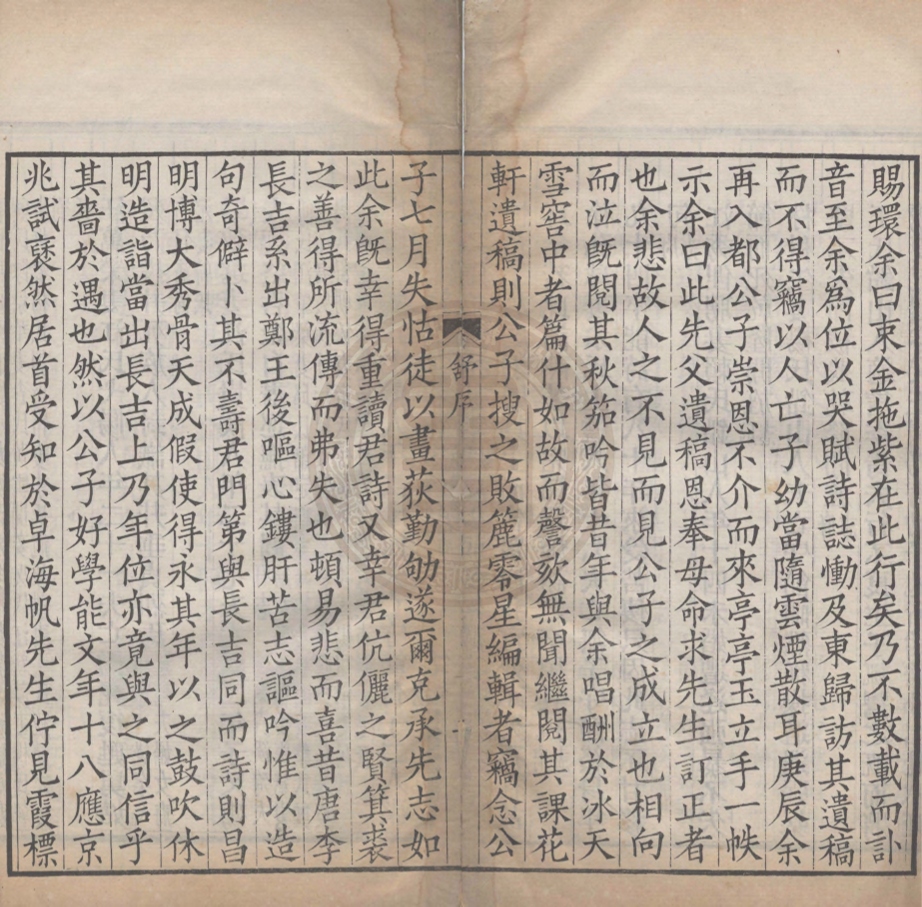 賜環余曰束金拖紫在此行矣乃不數載而訃
音至余爲位以哭賦詩誌慟及東歸訪其遺稿
而不得竊以人亡子幼當隨雲煙散耳庚辰余
再入都公子崇恩不介而來亭亭玉立手一帙
示余曰此先父遺稿恩奉母命求先生訂正者
也余悲故人之不見而見公子之成立也相向
而泣旣閱其秋笳吟皆昔年與余唱酬於冰天
雪窖中者篇什如故而謦欬無聞繼閱其課花
軒遺稿則公子搜之敗簏零星編輯者竊念公
舒序
子七月失怙徒以畫荻勤劬遂爾克承先志如
此余旣幸得重讀君詩又幸君伉儷之賢箕裘
之善得所流傳而弗失也頓易悲而喜昔唐李
長吉系出鄭王後嘔心鏤肝苦志謳吟惟以造
句奇僻卜其不壽君門第與長吉同而詩則昌
明博大秀骨天成假使得永其年以之鼓吹休
明造詣當出長吉上乃年位亦竟與之同信乎
其嗇於遇也然以公子好學能文年十八應京
兆試裦然居首受知於卓海帆先生佇見霞標